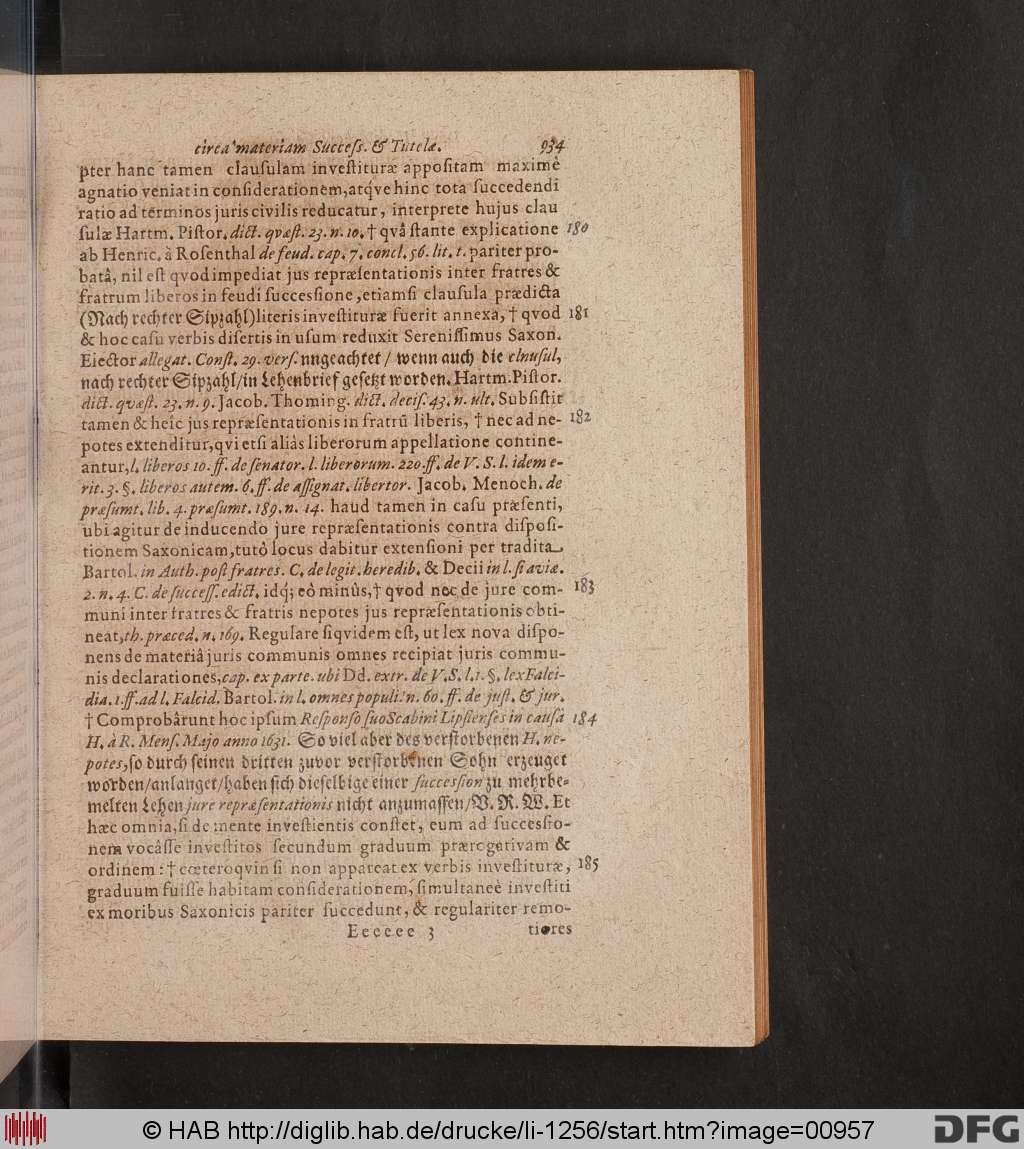 circa materiam Succeſs. & Tutelæ. 934
pter hanc tamen clauſulam inveſtituræ appoſitam maximè
agnatio veniat in conſiderationem, atqve hinc tota ſuccedendi
ratio ad terminos juris civilis reducatur, interprete hujus clau
ſulæ Hartm. Piſtor. dict. qvæſt. 23. n. 10. † qvâ ſtante explicatione 180
ab Henric. à Roſenthal de feud. cap. 7. concl. 56. lit. t. pariter pro-
batâ, nil eſt qvod impediat jus repræſentationis inter fratres &
fratrum liberos in feudi ſucceſſione, etiamſi clauſula prædicta
(Nach rechter Sipzahl) literis inveſtituræ fuerit annexa, † qvod 181
& hoc caſu verbis diſertis in uſum reduxit Sereniſſimus Saxon.
Elector allegat. Conſt. 29. verſ. nngeachtet / wenn auch die clnuſul,
nach rechter Sipzahl / in Lehenbrief geſetzt worden. Hartm. Piſtor.
dict. qvæſt. 23. n. 9. Jacob. Thoming. dict. deciſ. 43. n. ult. Subſiſtit
tamen & heic jus repræſentationis in fratrũ liberis, † nec ad ne- 182
potes extenditur, qvi etſi aliàs liberorum appellatione contine-
antur, l. liberos 10. ff. de ſenator. l. liberorum. 220. ff. de V. S. l. idem e-
rit. 3. §. liberos autem. 6. ff. de aſſignat. libertor. Jacob. Menoch. de
præſumt. lib. 4. præſumt. 189. n. 14. haud tamen in caſu præſenti,
ubi agitur de inducendo jure repræſentationis contra diſpoſi-
tionem Saxonicam, tutò locus dabitur extenſioni per tradita
Bartol. in Auth. poſt fratres. C. de legit. heredib. & Decii in l. ſi aviæ.
2. n. 4. C. de ſucceſſ. edict. idq́; eò minùs, † qvod nec de jure com- 183
muni inter fratres & fratris nepotes jus repræſentationis obti-
neat, th. præced. n. 169. Regulare ſiqvidem eſt, ut lex nova diſpo-
nens de materiâ juris communis omnes recipiat juris commu-
nis declarationes, cap. ex parte. ubi Dd. extr. de V. S. l. 1. §. lex Falci-
dia. 1. ff. ad l. Falcid. Bartol. in l. omnes populi. n. 60. ff. de juſt. & jur.
† Comprobârunt hoc ipſum Reſponſo ſuo Scabini Lipſienſes in cauſâ 184
H. à R. Menſ. Majo anno 1631. So viel aber des verſtorbenen H. ne-
potes, ſo durch ſeinen dritten zuvor verſtorbenen Sohn erzeuget
worden / anlanget / haben ſich dieſelbige einer ſucceſſion zu mehrbe-
melten Lehen jure repræſentationis nicht anzumaſſen / V. R. W. Et
hæc omnia, ſi de mente inveſtientis conſtet, eum ad ſucceſſio-
nem vocâſſe inveſtitos ſecundum graduum prærogativam &
ordinem: † cœteroqvin ſi non appareat ex verbis inveſtituræ, 185
graduum fuiſſe habitam conſiderationem, ſimultaneè inveſtiti
ex moribus Saxonicis pariter ſuccedunt, & regulariter remo-
Eeeeee 3 tiores
© HAB http://diglib.hab.de/drucke/li-1256/start.htm?image=00957
DFG